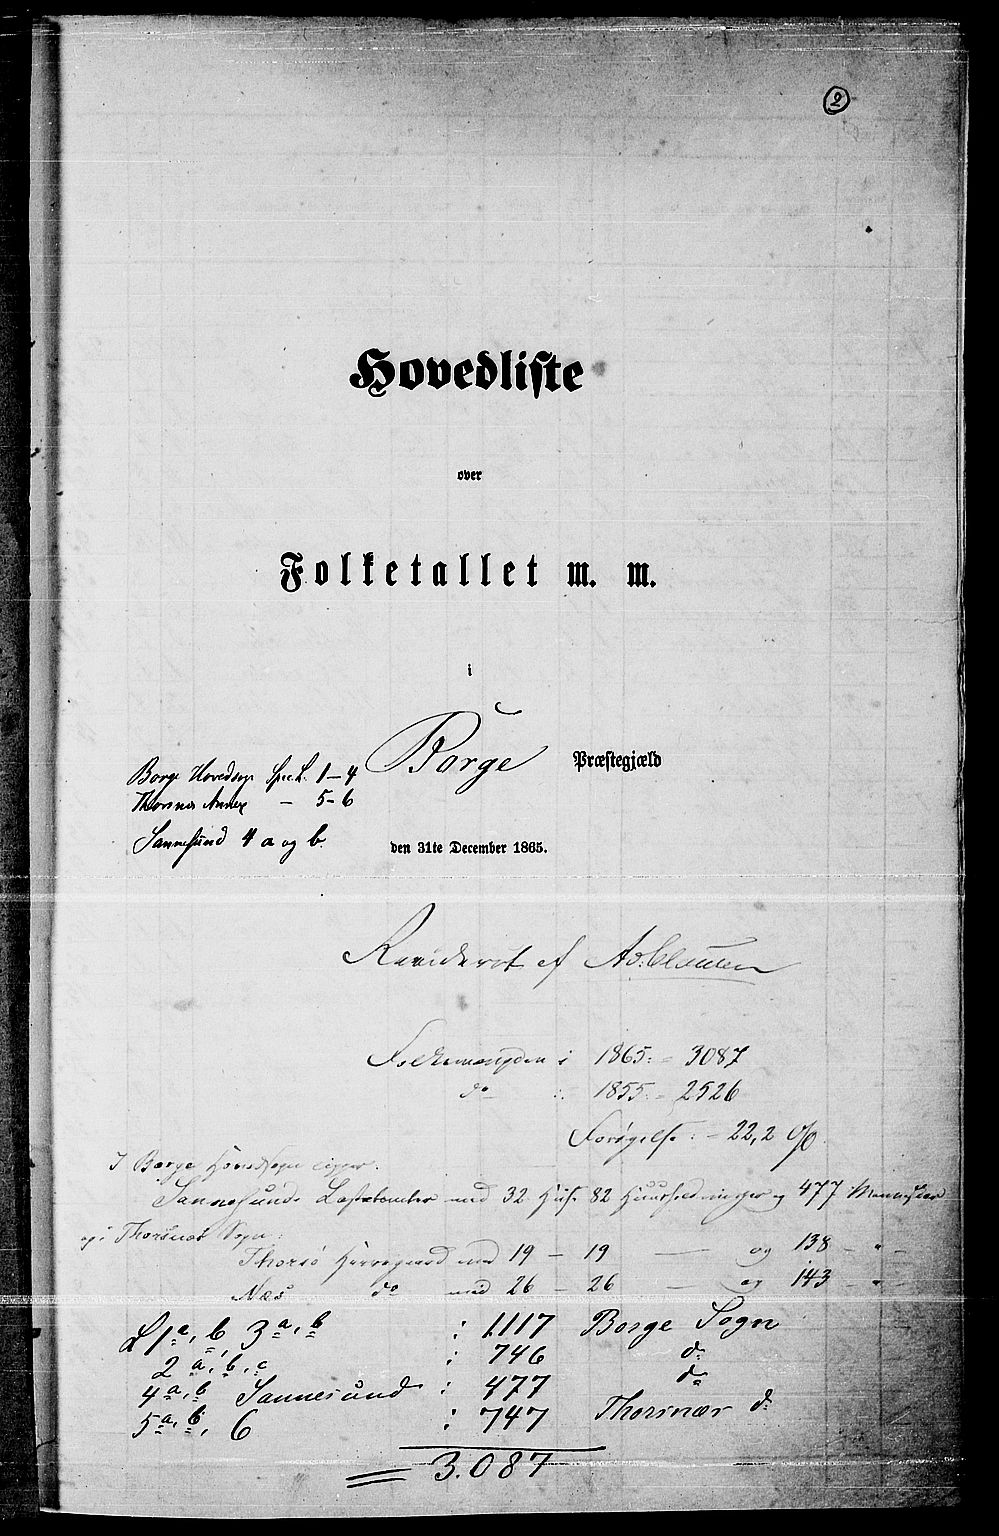 2
Hovedliste
over
Folketallet m. m.
i
Borge Præstegjæld
Borge Hovedsogn 1-4
Thorsnæs Annex - 5-6
Sannesund 4 a og b.
den 31te December 1865.
Revideret af Ad. Clausen
Folkemængden i 1865: - 3087
do : 1855: - 2526
Forøgelse: - 22,2 %
I Borge Hovedsogn ligger:
Sannesunds Ladested med 32 Huse 82 Huusholdninger og 477 Mennesker
og i Thorsnæs Sogn:
Thorsø Herregaard med 19 - 19 — og 138 - " -
Næs do med 26 - 26 — og 143 - " -
L 1 a, b, 3 a, b : 1117 Borge Sogn
2 a, b, c : 746 do
4 a, b Sannesund : 477 do
5 a, b, 6 : 747 Thorsnæs do
3.087